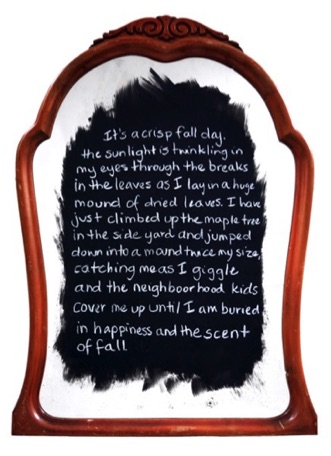 It's a crisp fall day.
the sunlight is twinkling in
my eyes through the breaks
in the leaves as I lay in a huge
mound of dried leaves. I have
just climbed up the maple tree
in the side yard and jumped
down into a mound twice my size,
catching me as I giggle
and the neighboorhood kids
cover me up until I am buried
in happiness and the scent
of fall